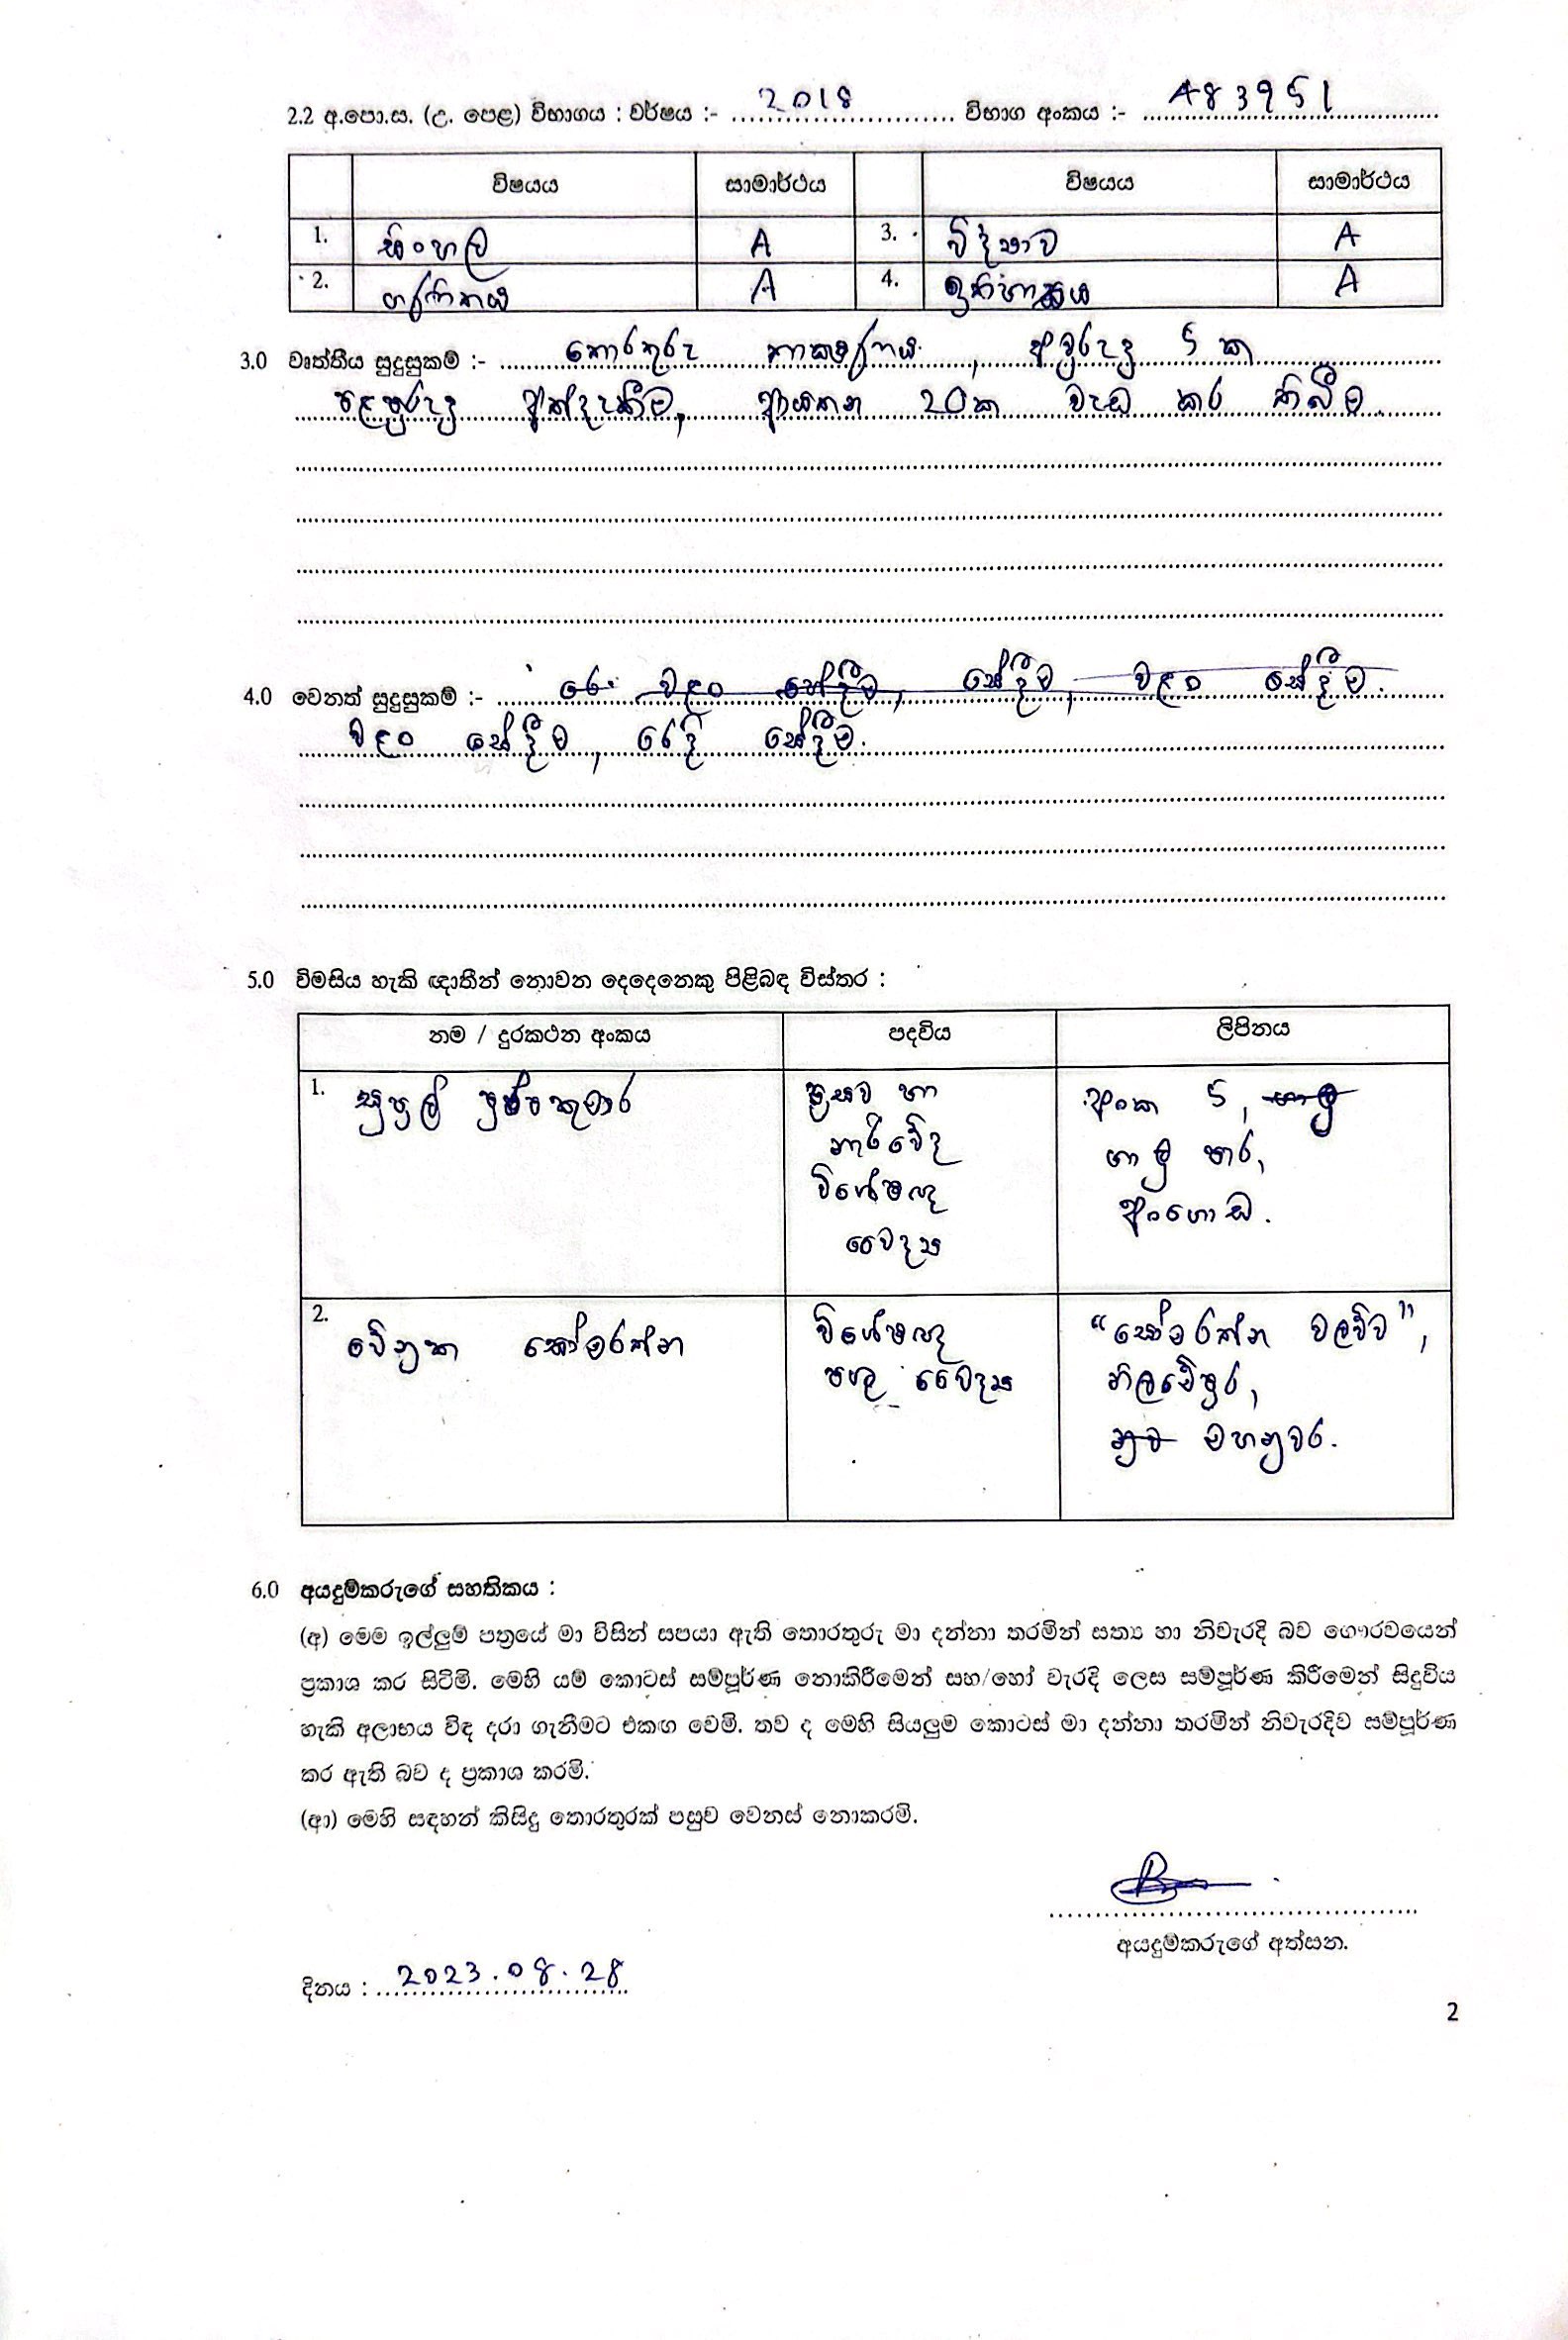 2.2 අ.පො.ස. (උ. පෙළ) විභාගය : වර්ෂය :- 2018 විභාග අංකය :- 483951
විෂයය සාමාර්ථය විෂයය සාමාර්ථය
1. සිංහල A 3. විද්‍යාව A
2. ගණිතය A 4. ඉතිහාසය A
3.0 වෘත්තීය සුදුසුකම් :- තොරතුරු තාක්ෂණය, අවුරුදු 5 ක
පළපුරුදු අත්දැකීම්, ආයතන 20ක වැඩ කර තිබීම.
4.0 වෙනත් සුදුසුකම් :- රෙ වළං සේදීම, සේදීම, වළං සේදීම.
වළං සේදීම, රෙදි සේදීම.
5.0 විමසිය හැකි ඥාතීන් නොවන දෙදෙනෙකු පිළිබඳ විස්තර :
නම / දුරකථන අංකය පදවිය ලිපිනය
1. සුපුල් පුෂ්පකුමාර ප්‍රසව හා අංක 5, ගාලු
නාරිවේද ගාලු පාර,
විශේෂඥ අංගොඩ.
වෛද්‍ය
2. වේනුක සෝමරත්න විශේෂඥ “සෝමරත්න වලව්ව”,
පශු වෛද්‍ය තිලවේපුර,
නුව මහනුවර.
6.0 අයදුම්කරුගේ සහතිකය :
(අ) මෙම ඉල්ලුම් පත්‍රයේ මා විසින් සපයා ඇති තොරතුරු මා දන්නා තරමින් සත්‍ය හා නිවැරදි බව ගෞරවයෙන්
ප්‍රකාශ කර සිටිමි. මෙහි යම් කොටස් සම්පූර්ණ නොකිරීමෙන් සහ/හෝ වැරදි ලෙස සම්පූර්ණ කිරීමෙන් සිදුවිය
හැකි අලාභය විඳ දරා ගැනීමට එකඟ වෙමි. තව ද මෙහි සියලුම කොටස් මා දන්නා තරමින් නිවැරදිව සම්පූර්ණ
කර ඇති බව ද ප්‍රකාශ කරමි.
(ආ) මෙහි සඳහන් කිසිදු තොරතුරක් පසුව වෙනස් නොකරමි.
අයදුම්කරුගේ අත්සන.
දිනය : 2023.08.28
2